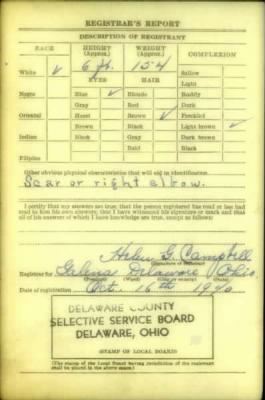 REGISTRAR'S REPORT
DESCRIPTION OF REGISTRANT
RACE HEIGHT (Approx.) WEIGHT (Approx.) COMPLEXION
6 ft. 154
White ✓ Sallow
EYES HAIR Light
Negro Blue ✓ Blonde Ruddy
Gray Red Dark
Oriental Hazel Brown ✓ Freckled
Brown Black Light brown ✓
Indian Black Gray Dark brown
Bald Black
Filipino
Other obvious physical characteristics that will aid in identification
Scar or right elbow.
I certify that my answers are true; that the person registered has read or has had
read to him his own answers; that I have witnessed his signature or mark and that
all of his answers of which I have knowledge are true, except as follows:
Helen G. Campbell
(Signature of registrar)
Registrar for Galena Delaware Ohio.
(Precinct) (Ward) (City or county) (State)
Date of registration Oct. 16th 1940
DELAWARE COUNTY
SELECTIVE SERVICE BOARD
DELAWARE, OHIO
(STAMP OF LOCAL BOARD)
(The stamp of the Local Board having jurisdiction of the registrant
shall be placed in the above space.)